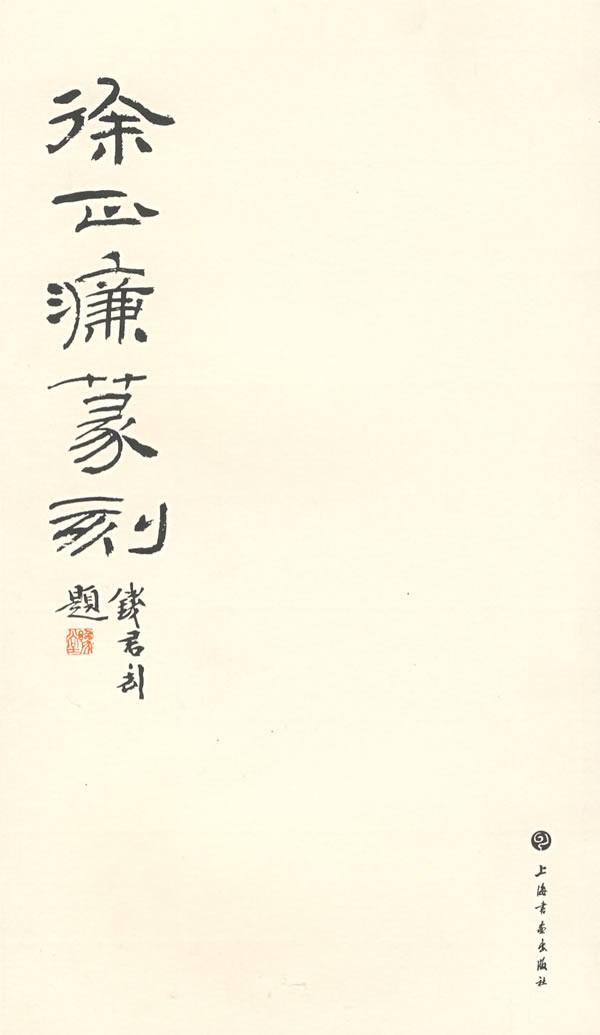 徐正濂篆刻
錢君匋
題
上海書畫出版社